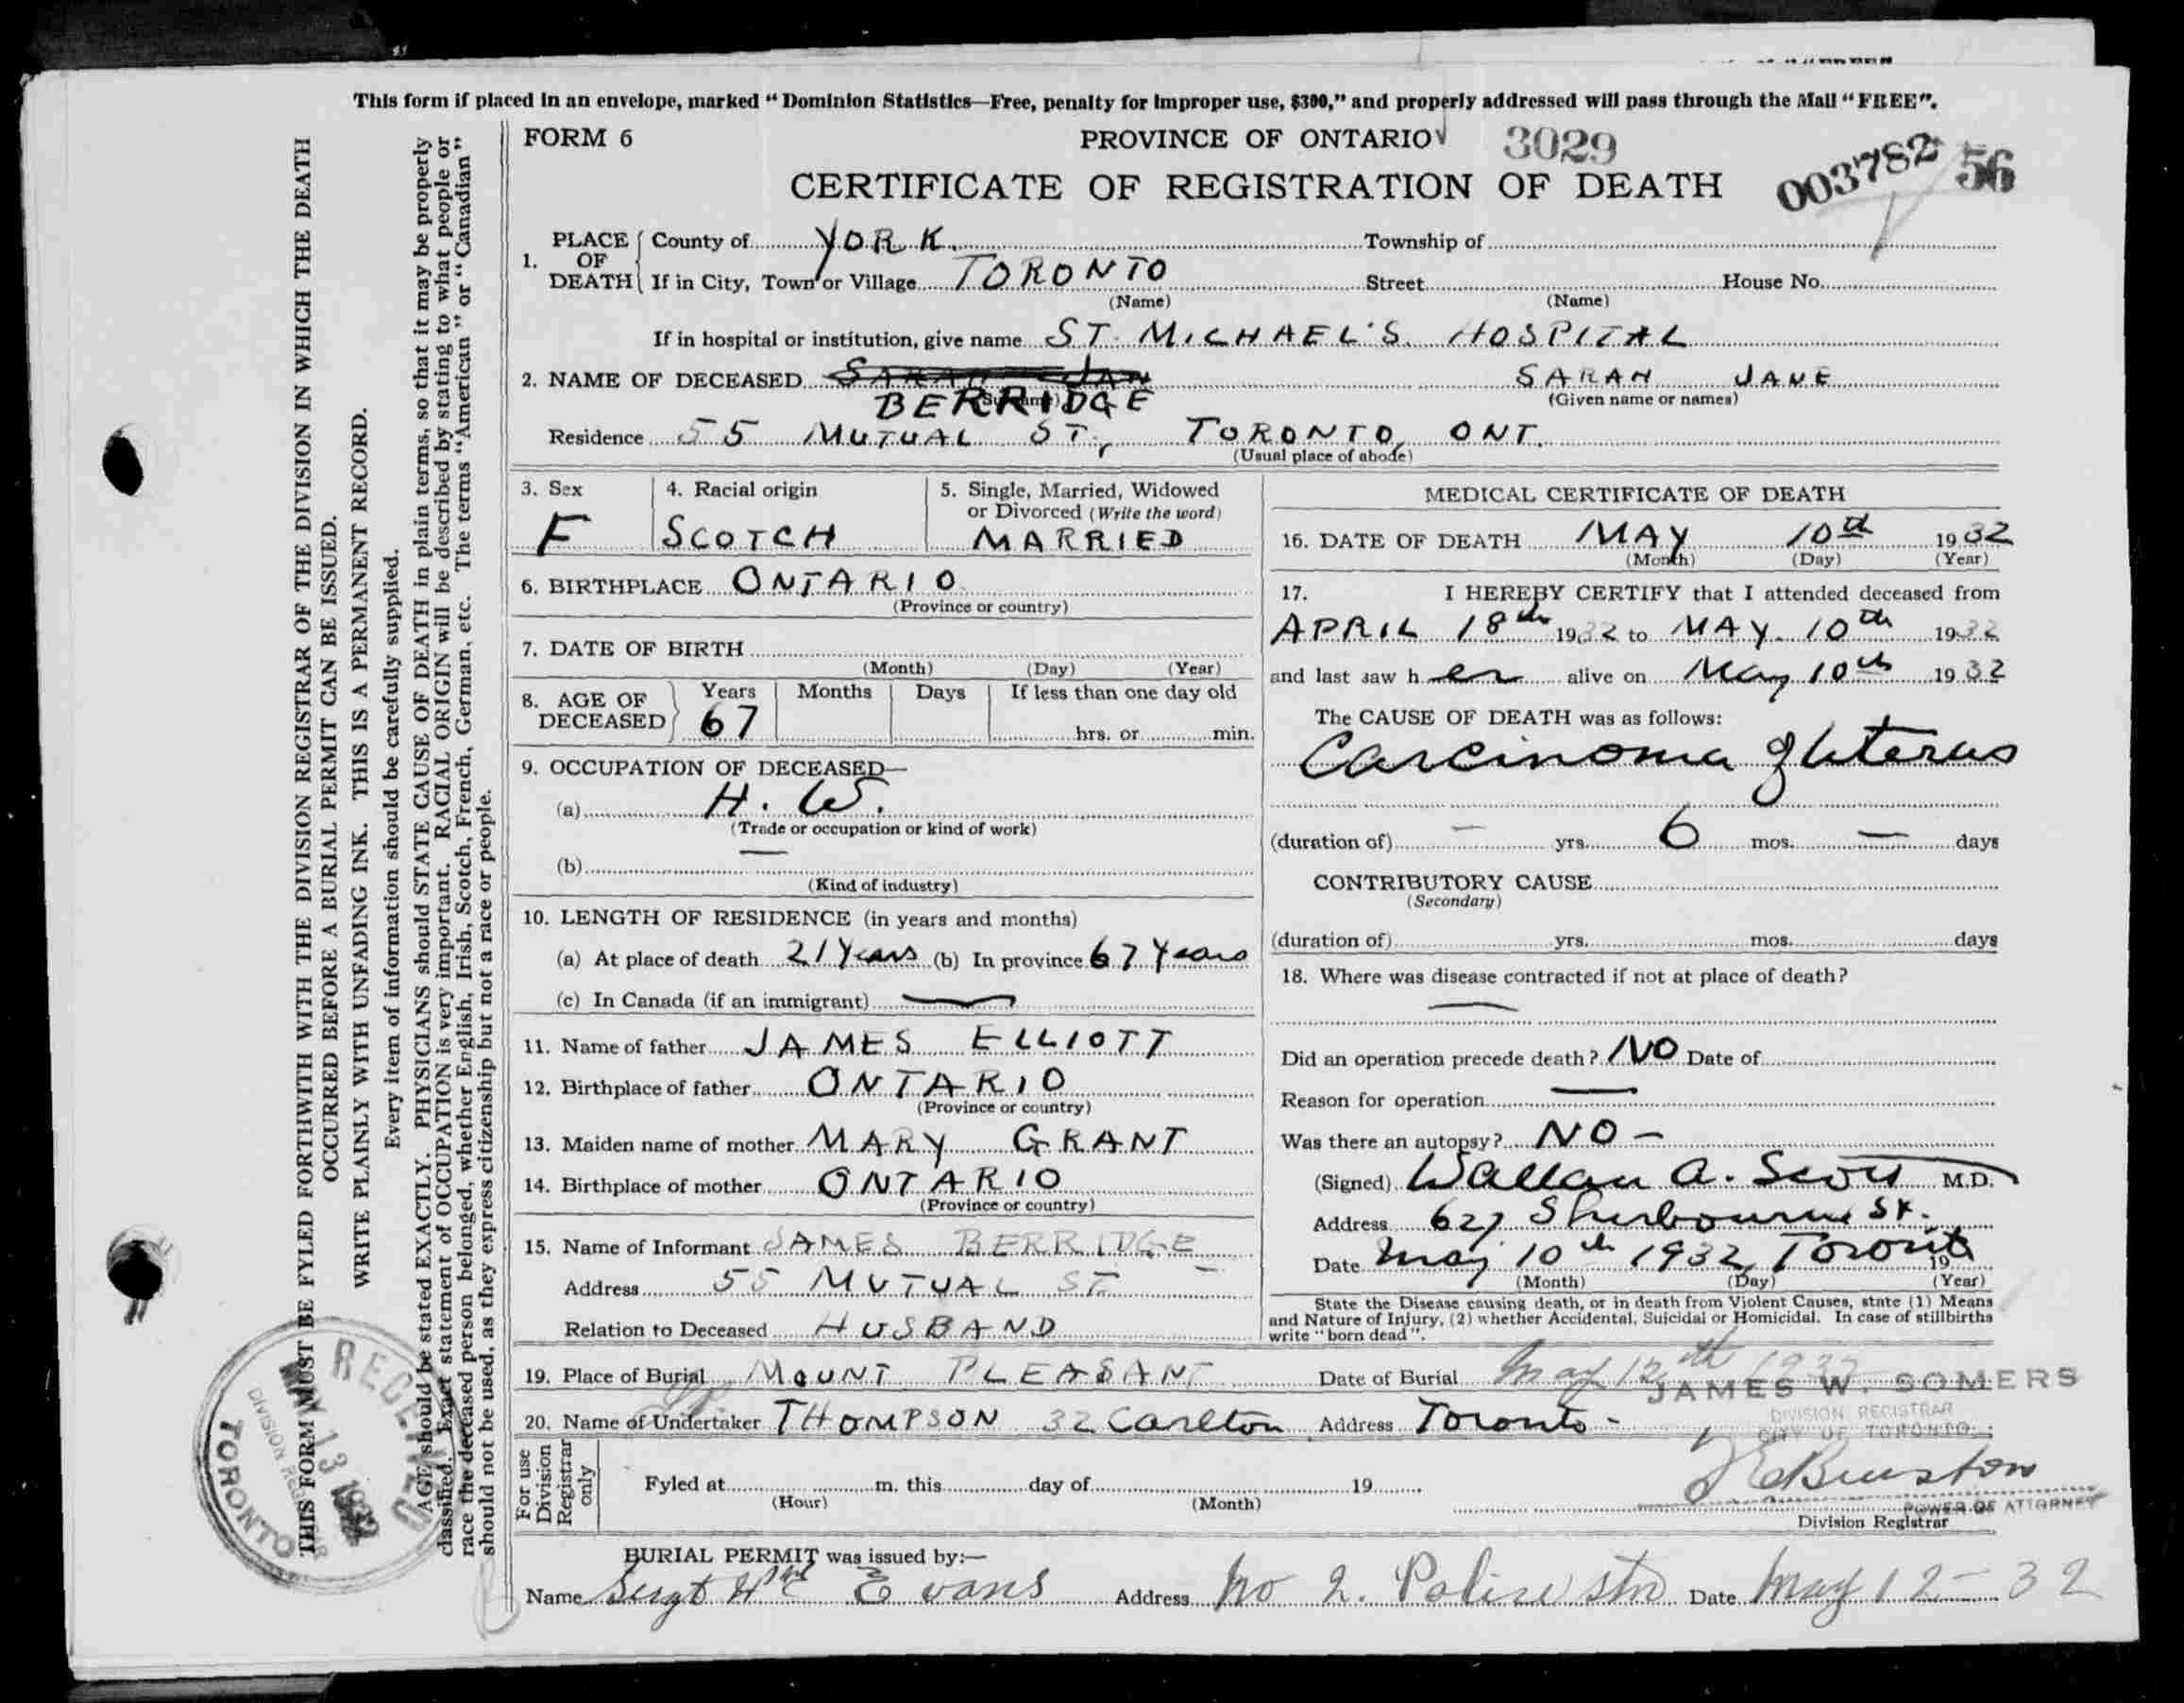 This form if placed in an envelope, marked “Dominion Statistics—Free, penalty for improper use, $300,” and properly addressed will pass through the Mail “FREE”.
FORM 6 PROVINCE OF ONTARIO 3029
CERTIFICATE OF REGISTRATION OF DEATH 003782 56
1. PLACE OF DEATH County of YORK. Township of
If in City, Town or Village TORONTO Street House No.
(Name) (Name)
If in hospital or institution, give name ST. MICHAEL'S. HOSPITAL
2. NAME OF DECEASED SARAH JAN SARAH JANE
BERRIDGE (Given name or names)
Residence 55 MUTUAL ST., TORONTO, ONT.
(Usual place of abode)
3. Sex F
4. Racial origin SCOTCH
5. Single, Married, Widowed
or Divorced (Write the word)
MARRIED
6. BIRTHPLACE ONTARIO
(Province or country)
7. DATE OF BIRTH
(Month) (Day) (Year)
8. AGE OF DECEASED Years Months Days If less than one day old
67 hrs. or min.
9. OCCUPATION OF DECEASED—
(a) H. W.
(Trade or occupation or kind of work)
(b) —
(Kind of industry)
10. LENGTH OF RESIDENCE (in years and months)
(a) At place of death 21 Years (b) In province 67 Years
(c) In Canada (if an immigrant) —
11. Name of father JAMES ELLIOTT
12. Birthplace of father ONTARIO
(Province or country)
13. Maiden name of mother MARY GRANT
14. Birthplace of mother ONTARIO
(Province or country)
15. Name of Informant JAMES BERRIDGE
Address 55 MUTUAL ST.
Relation to Deceased HUSBAND
MEDICAL CERTIFICATE OF DEATH
16. DATE OF DEATH MAY 10th 1932
(Month) (Day) (Year)
17. I HEREBY CERTIFY that I attended deceased from
APRIL 18th 1932 to MAY. 10th 1932
and last saw her alive on May 10th 1932
The CAUSE OF DEATH was as follows:
Carcinoma of Uterus
(duration of) — yrs. 6 mos. — days
CONTRIBUTORY CAUSE
(Secondary)
(duration of) yrs. mos. days
18. Where was disease contracted if not at place of death?
—
Did an operation precede death? NO Date of
Reason for operation —
Was there an autopsy? NO —
(Signed) Wallace A. Scott M.D.
Address 627 Sherbourne St.
Date May 10th 1932, Toronto 19
(Month) (Day) (Year)
State the Disease causing death, or in death from Violent Causes, state (1) Means
and Nature of Injury, (2) whether Accidental, Suicidal or Homicidal. In case of stillbirths
write “born dead”.
19. Place of Burial MOUNT PLEASANT Date of Burial May 12th 1932
JAMES W. SOMERS
DIVISION REGISTRAR
CITY OF TORONTO
20. Name of Undertaker THOMPSON 32 Carlton Address Toronto -
For use Division Registrar only
Fyled at m. this day of 19
(Hour) (Month)
POWER OF ATTORNEY
Division Registrar
BURIAL PERMIT was issued by:—
Name Sergt Evans Address No 2. Police Stn Date May 12-32
THIS FORM MUST BE FYLED FORTHWITH WITH THE DIVISION REGISTRAR OF THE DIVISION IN WHICH THE DEATH
OCCURRED BEFORE A BURIAL PERMIT CAN BE ISSUED.
WRITE PLAINLY WITH UNFADING INK. THIS IS A PERMANENT RECORD.
Every item of information should be carefully supplied.
AGE should be stated EXACTLY. PHYSICIANS should STATE CAUSE OF DEATH in plain terms, so that it may be properly
classified. Exact statement of OCCUPATION is very important. RACIAL ORIGIN will be described by stating to what people or
race the deceased person belonged, whether English, Irish, Scotch, French, German, etc. The terms “American” or “Canadian”
should not be used, as they express citizenship but not a race or people.
RECEIVED
MAY 13 1932
DIVISION REGISTRAR
TORONTO